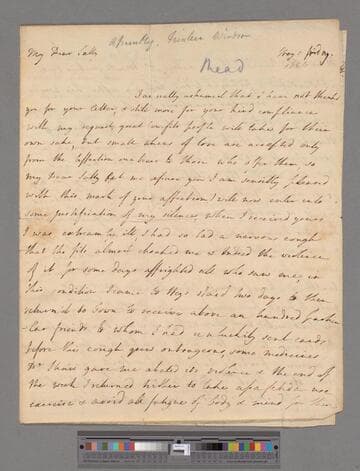 My Dear Sally
Hays friday
Read
I am really ashamed that I have not thanked
you for your letter, & still more for your kind compliance
with my request, great gifts people will take for their
own sake, but small ones of love are accepted only
from the affection one bears to those who offer them so
my Dear Sally let me assure you I am sensibly pleased
with this mark of your affection I will now enter into
some justification of my silence, when I received yours
I was extreamly ill & had so bad a nervous cough
that the fits almost choaked me & indeed the violence
of it for some days affrighted all who saw me, in
this condition I came to Hays staid two days & then
return'd to Town to receive above an hundred
friends to whom I had unluckily sent cards
before this cough grew outrageous, some medecines
Dr Shaw gave me abated its violence & the end of
the week I returned hither to take assafoetida use
exercise & avoid all fatigue of body & mind for